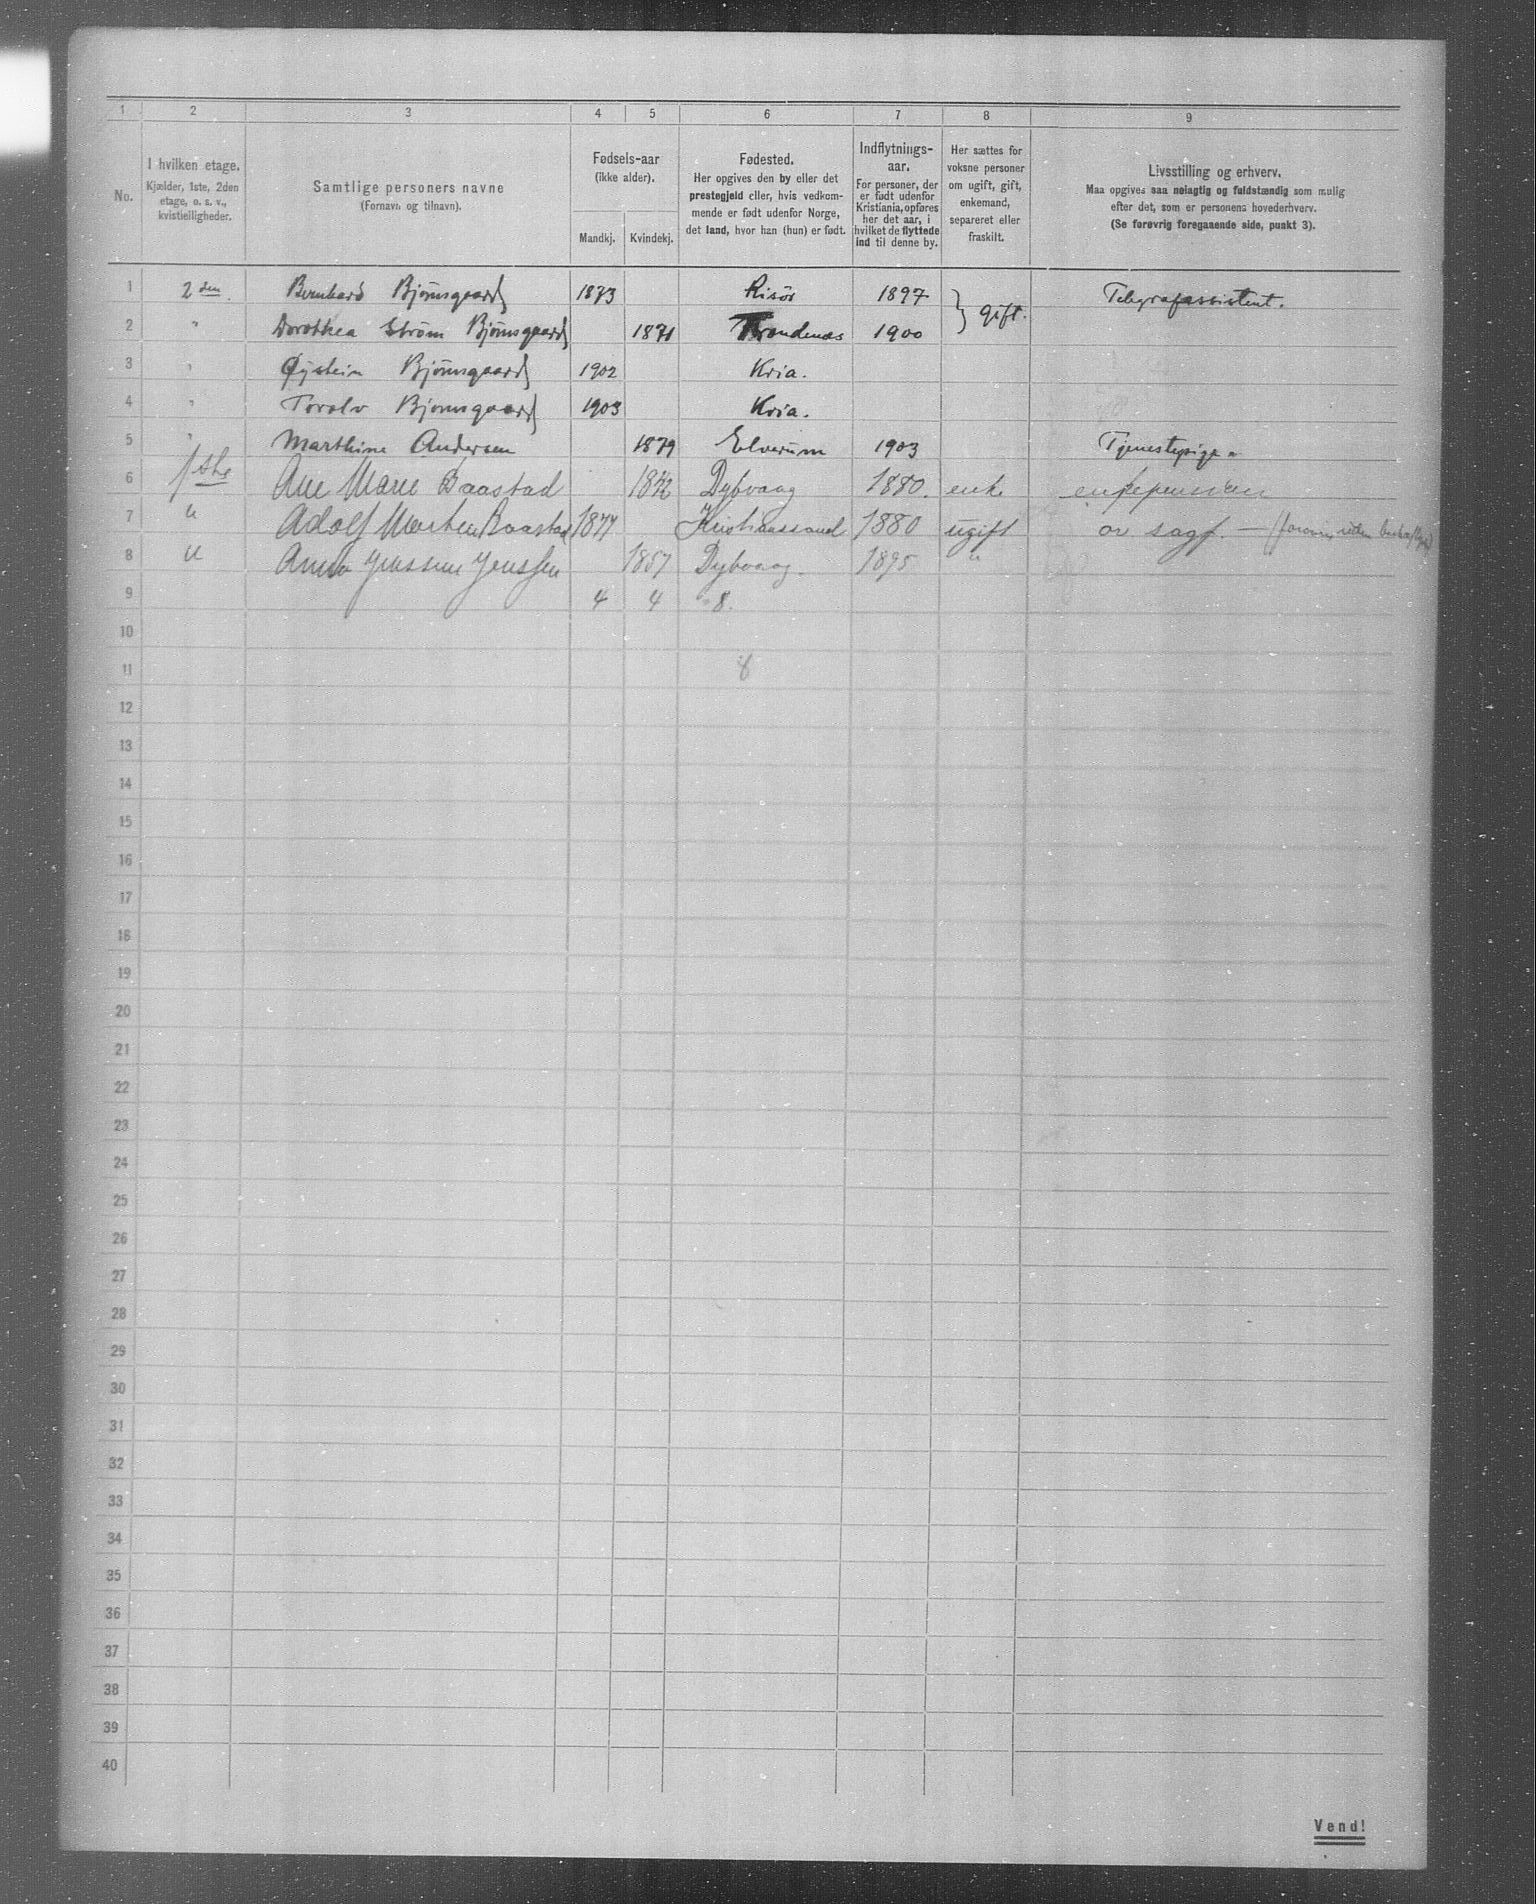 1 2 3 4 5 6 7 8 9
No.
I hvilken etage.
Kjælder, 1ste, 2den
etage, o. s. v.,
kvistleiligheder.
Samtlige personers navne
(Fornavn og tilnavn).
Fødsels-aar
(ikke alder).
Mandkj. Kvindekj.
Fødested.
Her opgives den by eller det
prestegjeld eller, hvis vedkom-
mende er født udenfor Norge,
det land, hvor han (hun) er født.
Indflytnings-
aar.
For personer, der
er født udenfor
Kristiania, opføres
her det aar, i
hvilket de flyttede
ind til denne by.
Her sættes for
voksne personer
om ugift, gift,
enkemand,
separeret eller
fraskilt.
Livsstilling og erhverv.
Maa opgives saa nøiagtig og fuldstændig som mulig
efter det, som er personens hovederhverv.
(Se forøvrig foregaaende side, punkt 3).
1 2den Bernhard Bjørnsgaard 1873 Risør 1897 } gift. Telegrafassistent.
2 " Dorothea Strøm Bjørnsgaard 1871 Trondenæs 1900
3 " Øystein Bjørnsgaard 1902 Kria.
4 " Toralv Bjørnsgaard 1903 Kria.
5 " Marthine Andersen 1879 Elverum 1903 Tjenestepige.
6 1ste Ane Marie Baastad Dybvaag 1880. enke enkepension
7 " Adolf Morten Baastad 1877 Kristianssand 1880 ugift ov sagf.
8 " Anna Jenssen 1857 Dybvaag. 1895 "
9 4 4 8.
10
11 8
12
13
14
15
16
17
18
19
20
21
22
23
24
25
26
27
28
29
30
31
32
33
34
35
36
37
38
39
40
Vend!